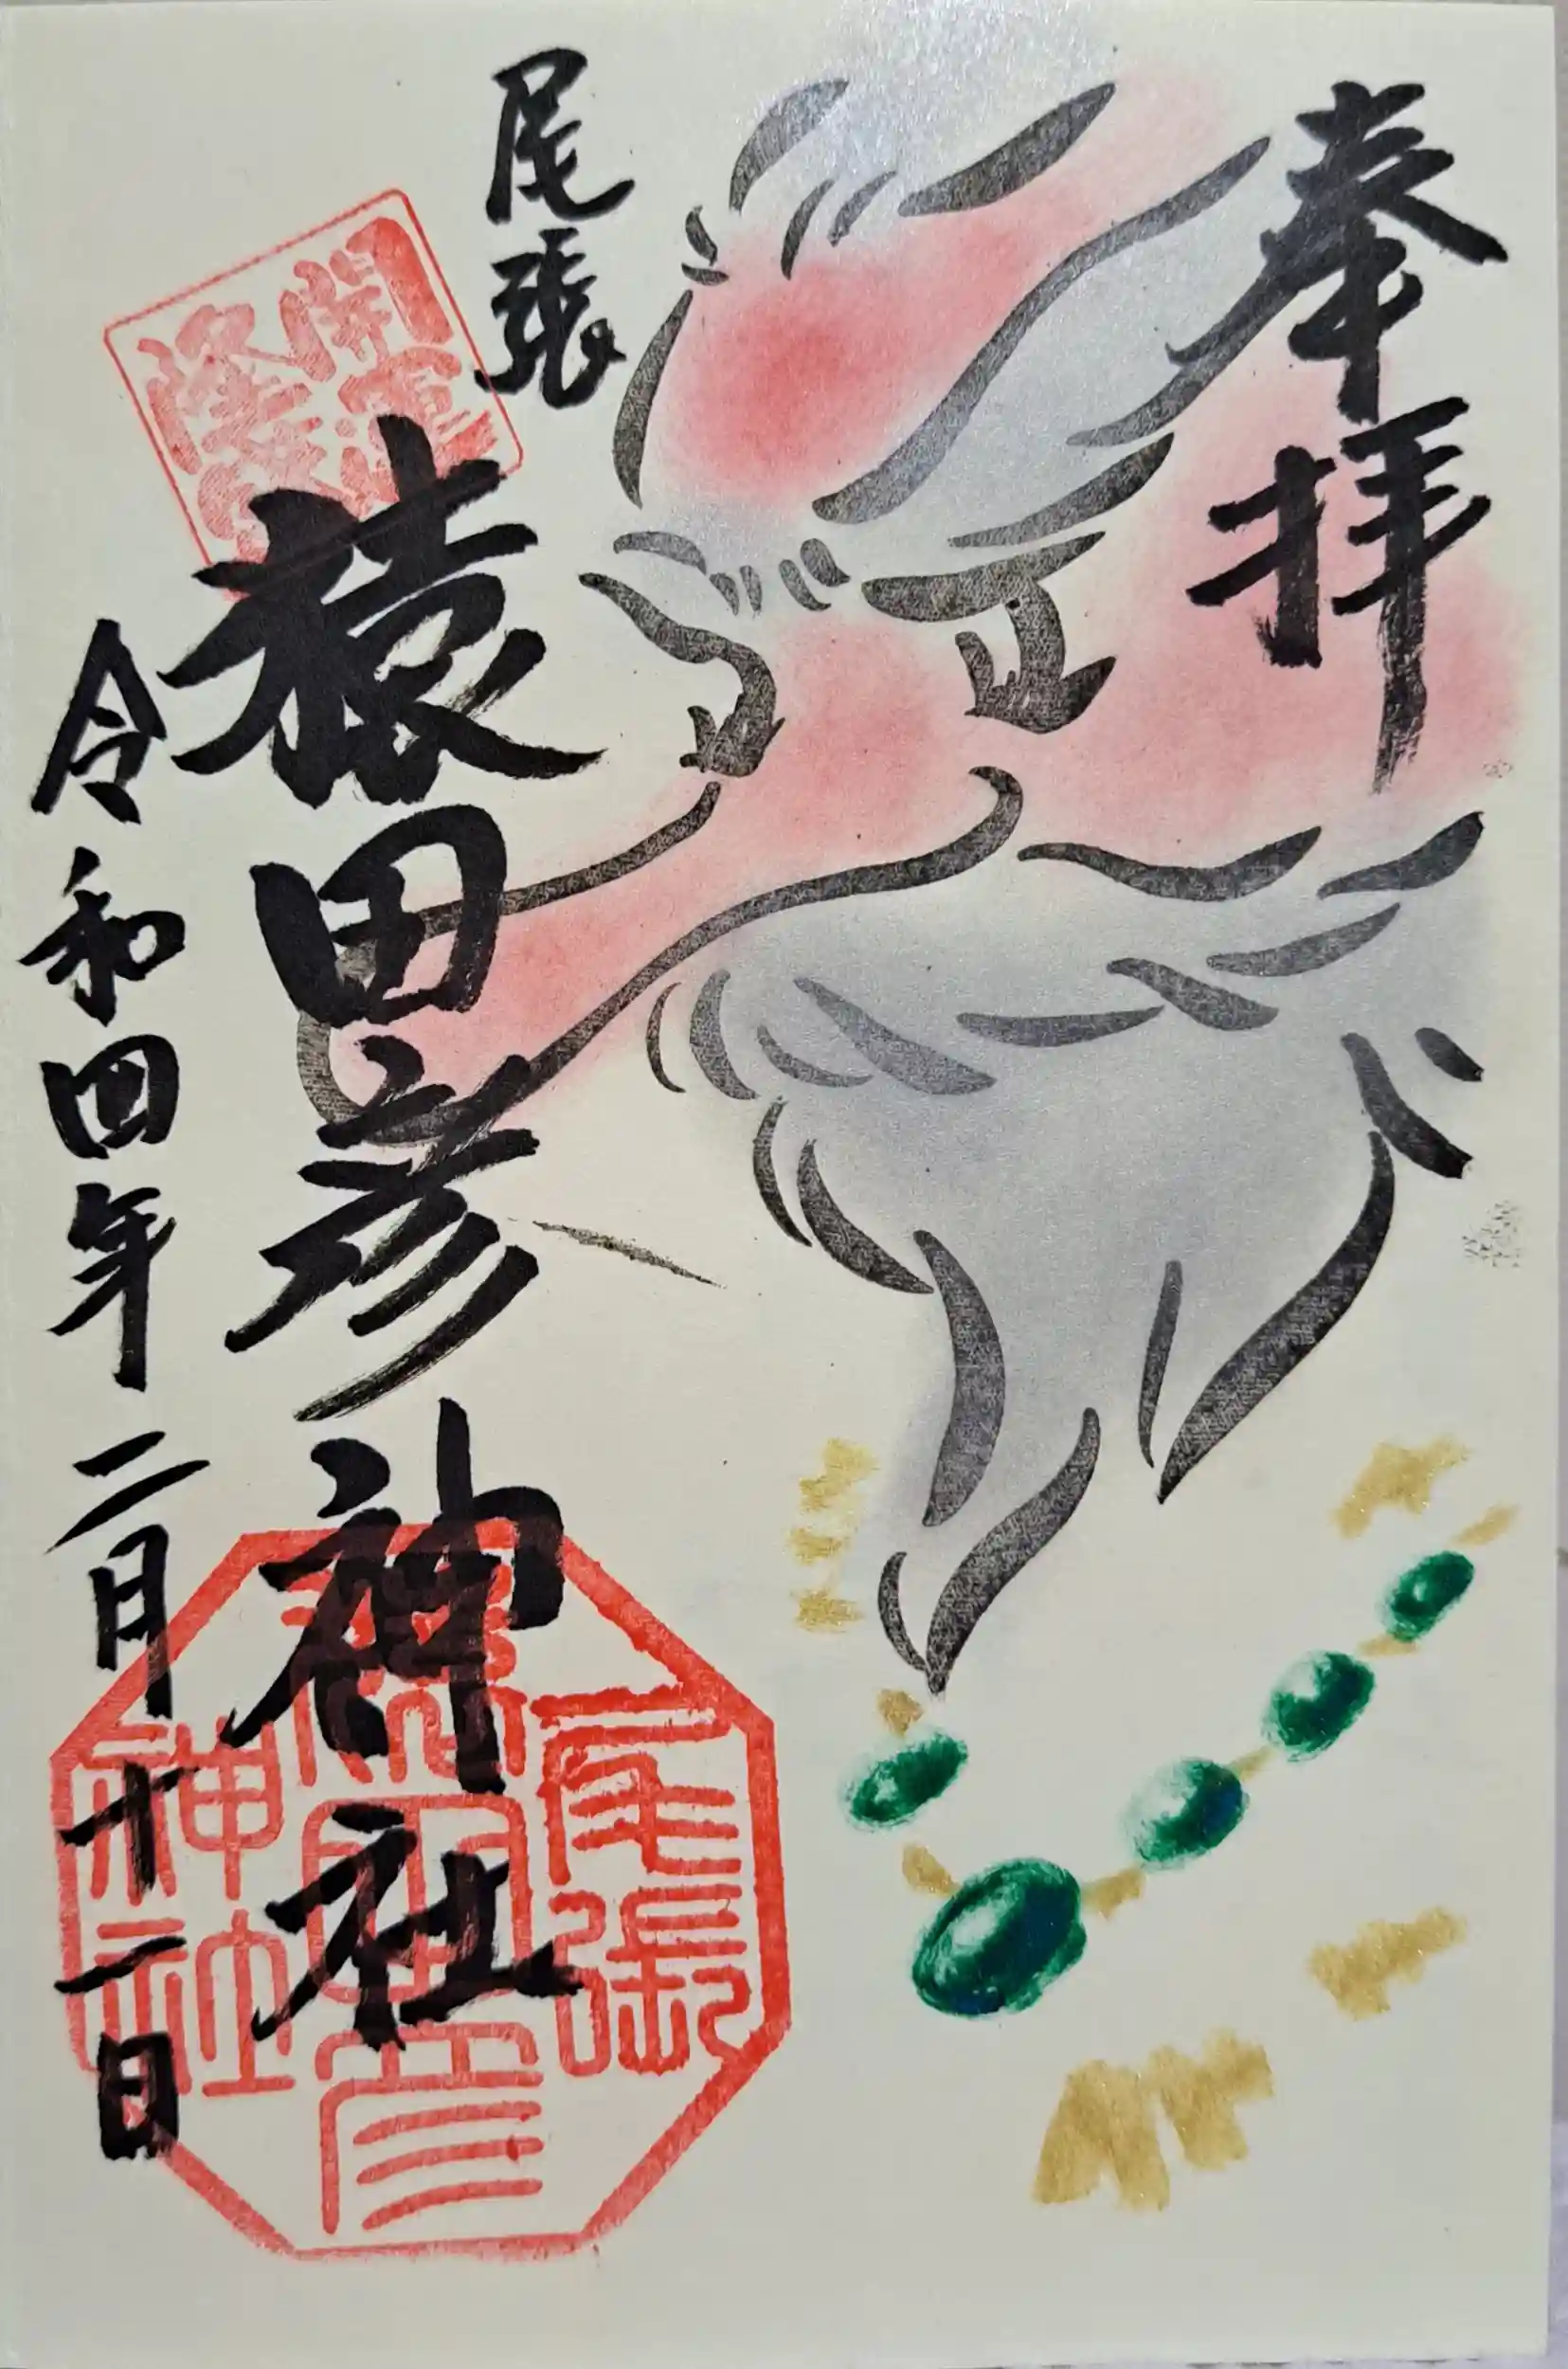 奉拝
尾張
猿田彦神社
令和四年二月十二日
開運
尾張
猿田彦
神社